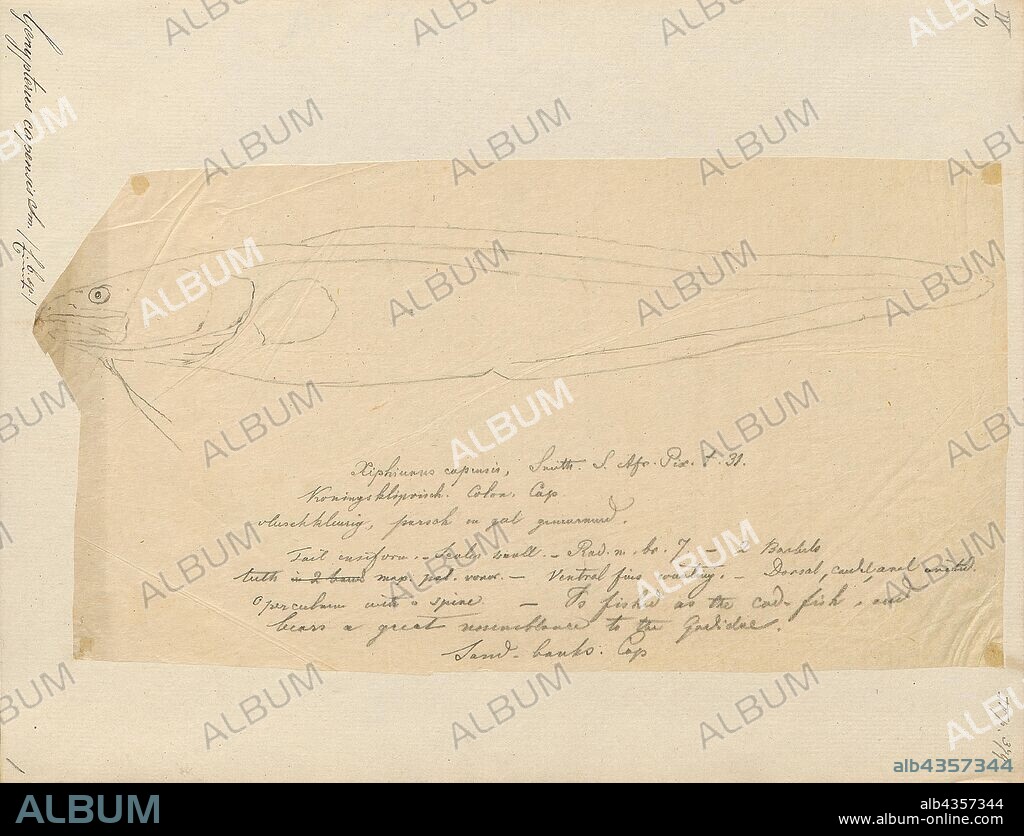 Xiphiurus capensis, Smith. S. Afr. Pix. t. 31.
Koningsklipvisch. Colon. Cap
vleeschkleurig, paarsch en gemarmerd.
Tail ensiform. - Scales small. - Rad. m. br. 7 - 2 Barbels
teeth in 2 band max. pal. vomer. - Ventral fins wanting. - Dorsal, caudal, anal united.
Operculum with a spine - Is fished as the cod-fish, and
bears a great resemblance to the Gadidae.
Sand-banks. Cap
Genypterus capensis
IV
10
1
ALBUM
alb4357344
ALBUM
alb4357344
www.album-online.com